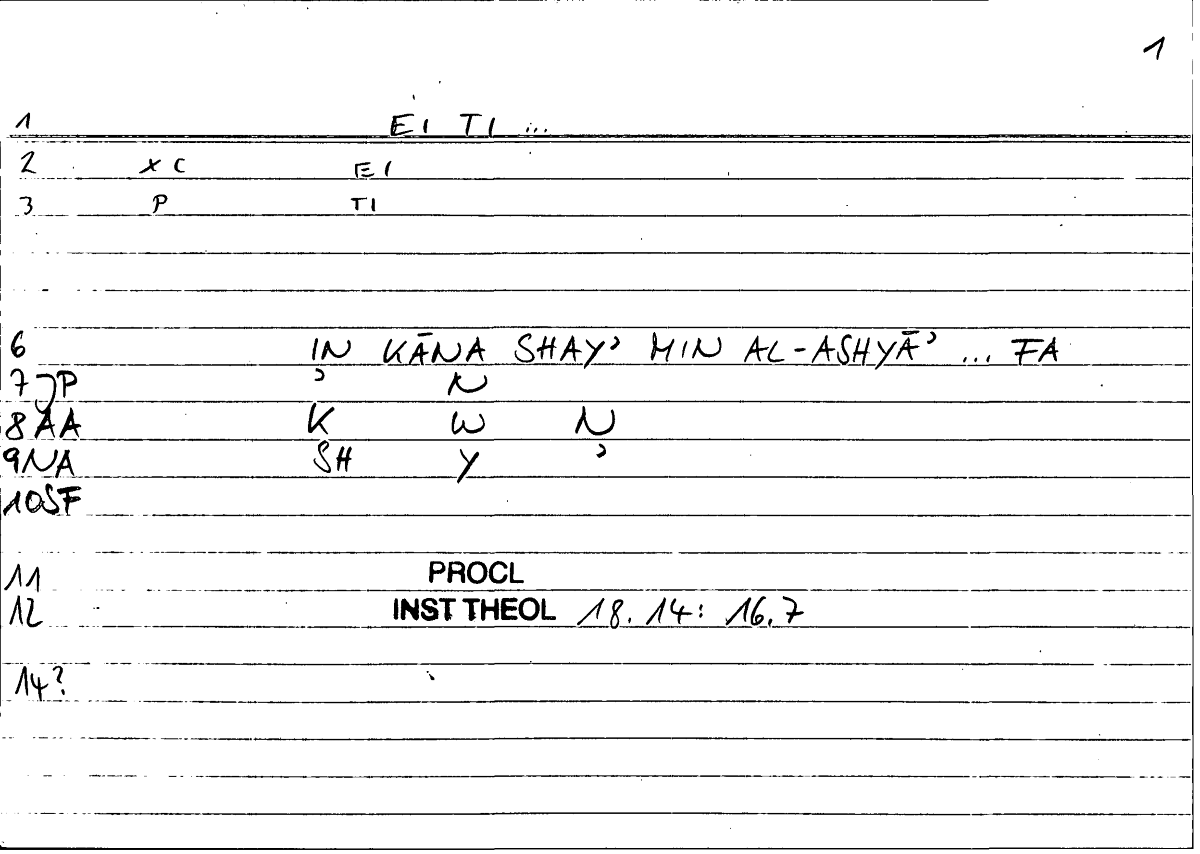 1
1 EI TI ...
2 XC EI
3 P TI
6 IN KĀNA SHAYʾ MIN AL-ASHYĀʾ ... FA
7 JP ʾ N
8 AA K W N
9 NA SH Y ʾ
10 SF
11 PROCL
12 INST THEOL 18.14: 16.7
14?